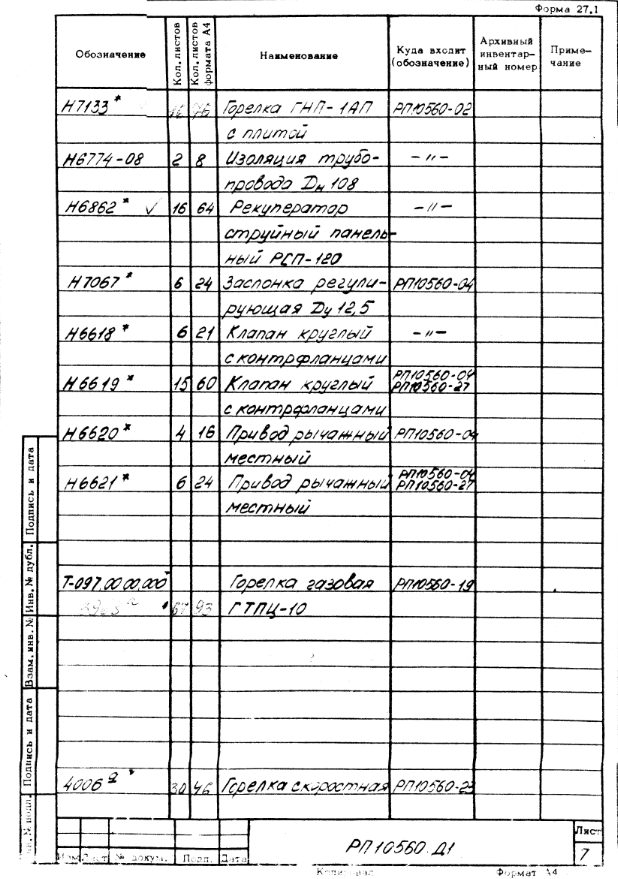 Форма 27.1
Обозначение Кол.листов Кол.листов формата А4 Наименование Куда входит (обозначение) Архивный инвентарный номер Примечание
Н7133* Горелка ГНП-1АП РП10560-02
с плитой
Н6774-08 2 8 Изоляция трубо- -"-
провода Dн 108
Н6862* √ 16 64 Рекуператор -"-
струйный панель-
ный РСП-120
Н7067* 6 24 Заслонка регули- РП10560-04
рующая Dу 12,5
Н6618* 6 21 Клапан круглый -"-
с контрфланцами
РП10560-04
Н6619* 15 60 Клапан круглый РП10560-27
с контрфланцами
Н6620* 4 16 Привод рычажный РП10560-04
местный
РП10560-04
Н6621* 6 24 Привод рычажный РП10560-27
местный
Т-097.00.00.000 Горелка газовая РП10560-19
67 93 ГТПЦ-10
4006 30 46 Горелка скоростная РП10560-23
Подпись и дата
Инв.№ дубл.
Взам.инв.№
Подпись и дата
Инв.№ подл.
РП.10560.Д1
Лист
7
Изм. Лист № докум. Подп. Дата
Копировал Формат А4